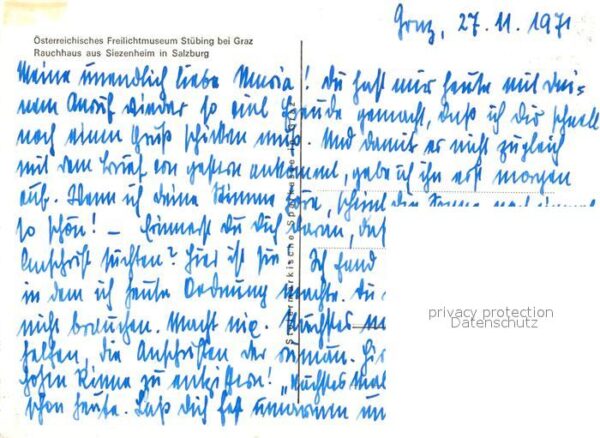 Österreichisches Freilichtmuseum Stübing bei Graz
Rauchhaus aus Siezenheim in Salzburg
Graz, 27.11.1971
Meine unendlich liebe Maria! Du hast mir heute mit Dei-
nem Anruf wieder so viel Freude gemacht, daß ich Dir schnell
noch einen Gruß schicken muß. Und damit er nicht zugleich
mit dem Brief von gestern ankommt, gebe ich ihn erst morgen
auf. Wenn ich deine Stimme höre, scheint die Sonne noch einmal
so schön! – Erinnerst Du Dich daran, daß
Anschrift suchten? Hier ist sie. Ich fand
in dem ich heute Ordnung machte. Du
nicht brauchen. Macht nix. Nächstes
helfen, die Anschriften der
hohen Rinne zu entziffern! „Nächstes Mal
schon heute. Laß Dich fest umarmen un
Steiermärkische Sparkasse in Graz
privacy protection
Datenschutz